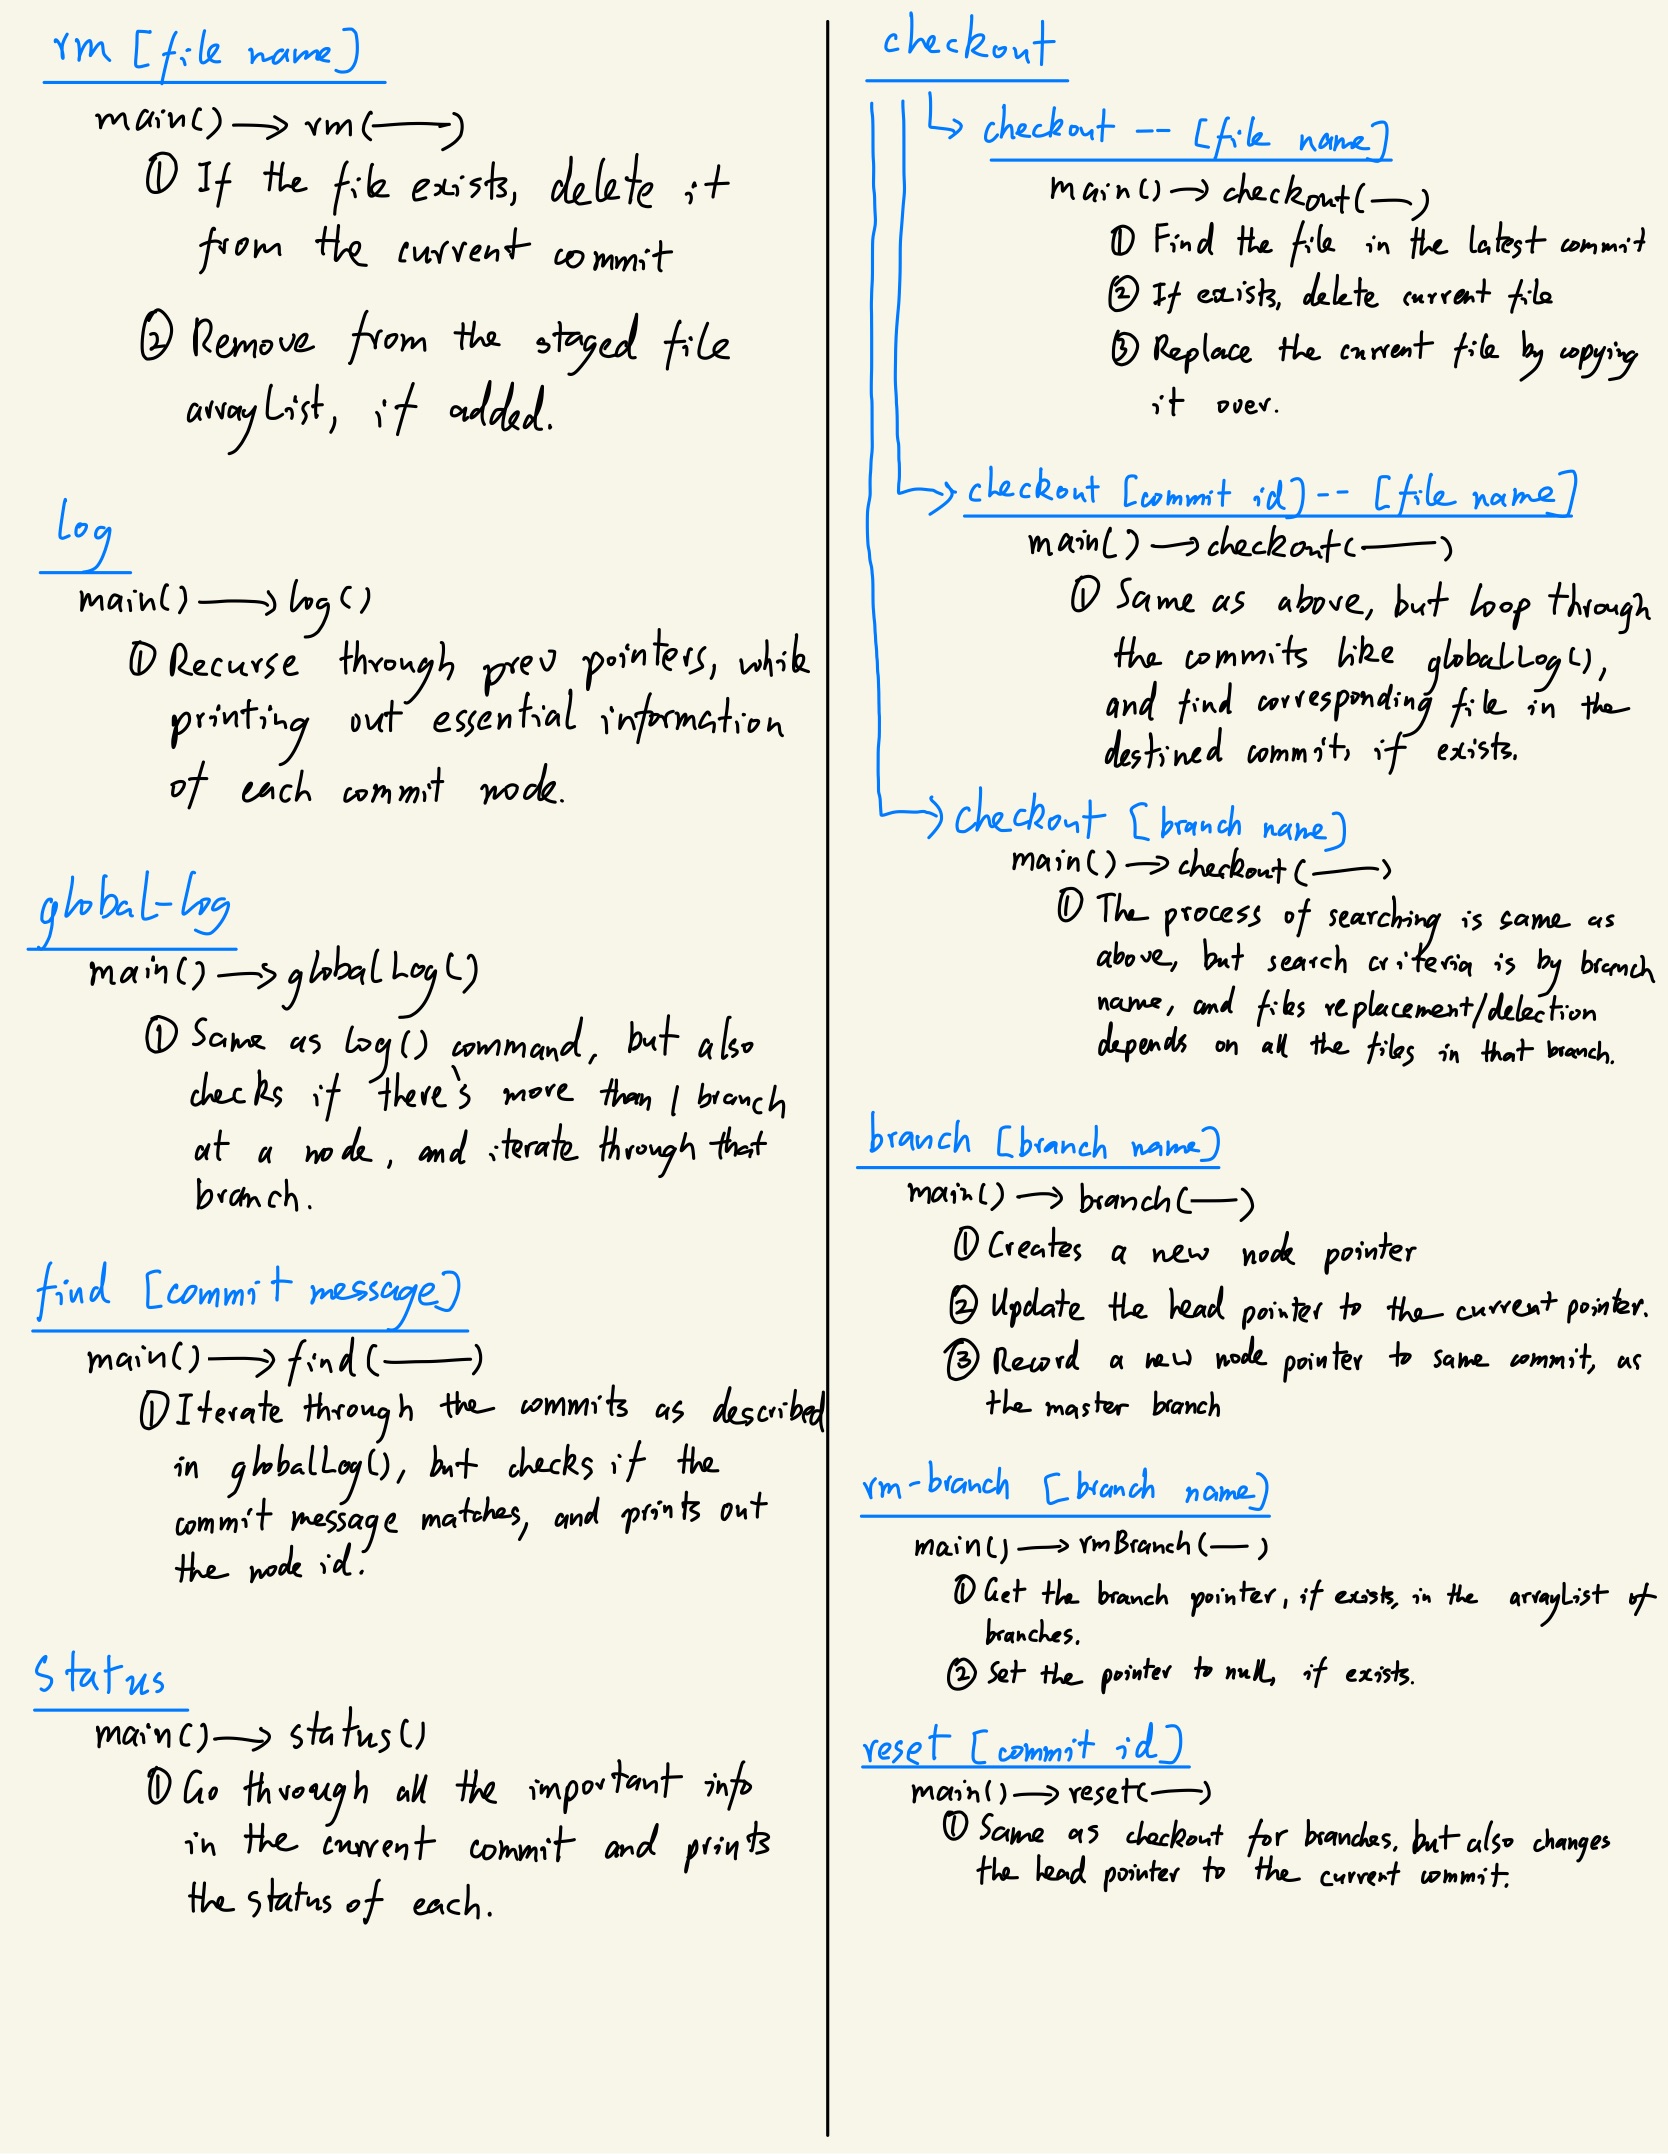 rm [file name]
main() → rm(——)
① If the file exists, delete it
from the current commit
② Remove from the staged file
arrayList, if added.
log
main() → log()
① Recurse through prev pointers, while
printing out essential information
of each commit node.
global-log
main() → globalLog()
① Same as log() command, but also
checks if there's more than 1 branch
at a node, and iterate through that
branch.
find [commit message]
main() → find(——)
① Iterate through the commits as described
in globalLog(), but checks if the
commit message matches, and prints out
the node id.
status
main() → status()
① Go through all the important info
in the current commit and prints
the status of each.
checkout
checkout -- [file name]
main() → checkout(——)
① Find the file in the latest commit
② If exists, delete current file
③ Replace the current file by copying
it over.
checkout [commit id] -- [file name]
main() → checkout(——)
① Same as above, but loop through
the commits like globalLog(),
and find corresponding file in the
destined commit, if exists.
checkout [branch name]
main() → checkout(——)
① The process of searching is same as
above, but search criteria is by branch
name, and files replacement/delection
depends on all the files in that branch.
branch [branch name]
main() → branch(——)
① Creates a new node pointer
② Update the head pointer to the current pointer.
③ Record a new node pointer to same commit, as
the master branch
rm-branch [branch name]
main() → rmBranch(——)
① Get the branch pointer, if exists, in the arrayList of
branches.
② Set the pointer to null, if exists.
reset [commit id]
main() → reset(——)
① Same as checkout for branches, but also changes
the head pointer to the current commit.